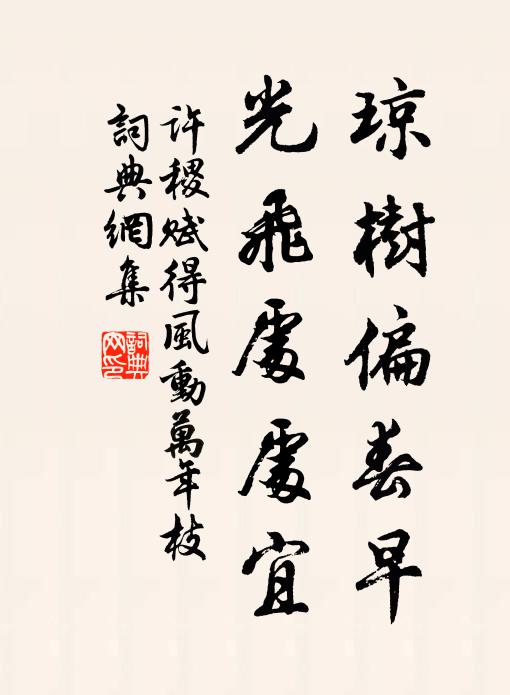 琼樹偏春早
光飛處處宜
許稷賦得風動萬年枝
詞典網集
詞典網印